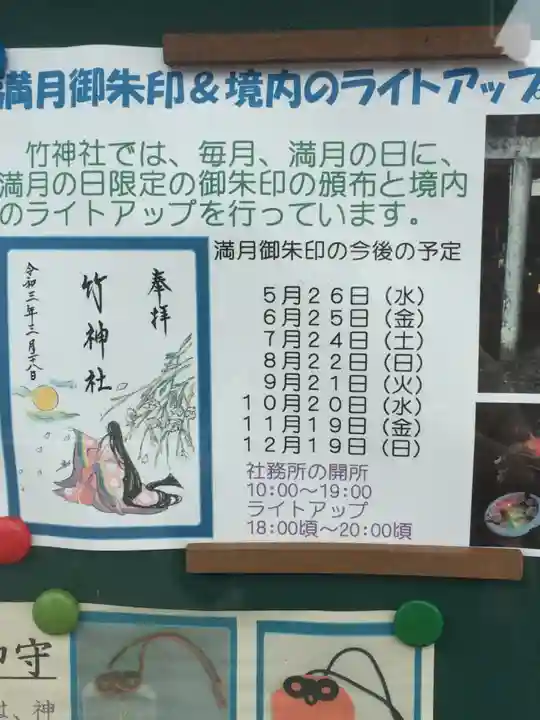 満月御朱印&境内のライトアップ
竹神社では、毎月、満月の日に、
満月の日限定の御朱印の頒布と境内
のライトアップを行っています。
満月御朱印の今後の予定
5月26日(水)
6月25日(金)
7月24日(土)
8月22日(日)
9月21日(火)
10月20日(水)
11月19日(金)
12月19日(日)
社務所の開所
10:00〜19:00
ライトアップ
18:00頃〜20:00頃
奉拝
竹神社
令和三年三月廿八日
守
は、神